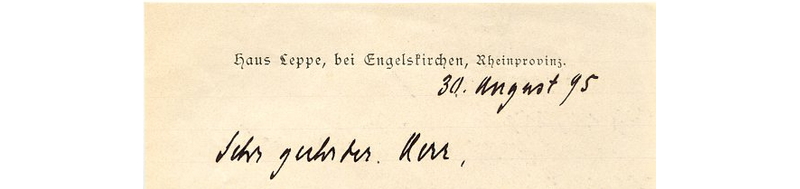 Haus Leppe, bei Engelskirchen, Rheinprovinz.
30. August 95
Sehr geehrter Herr,